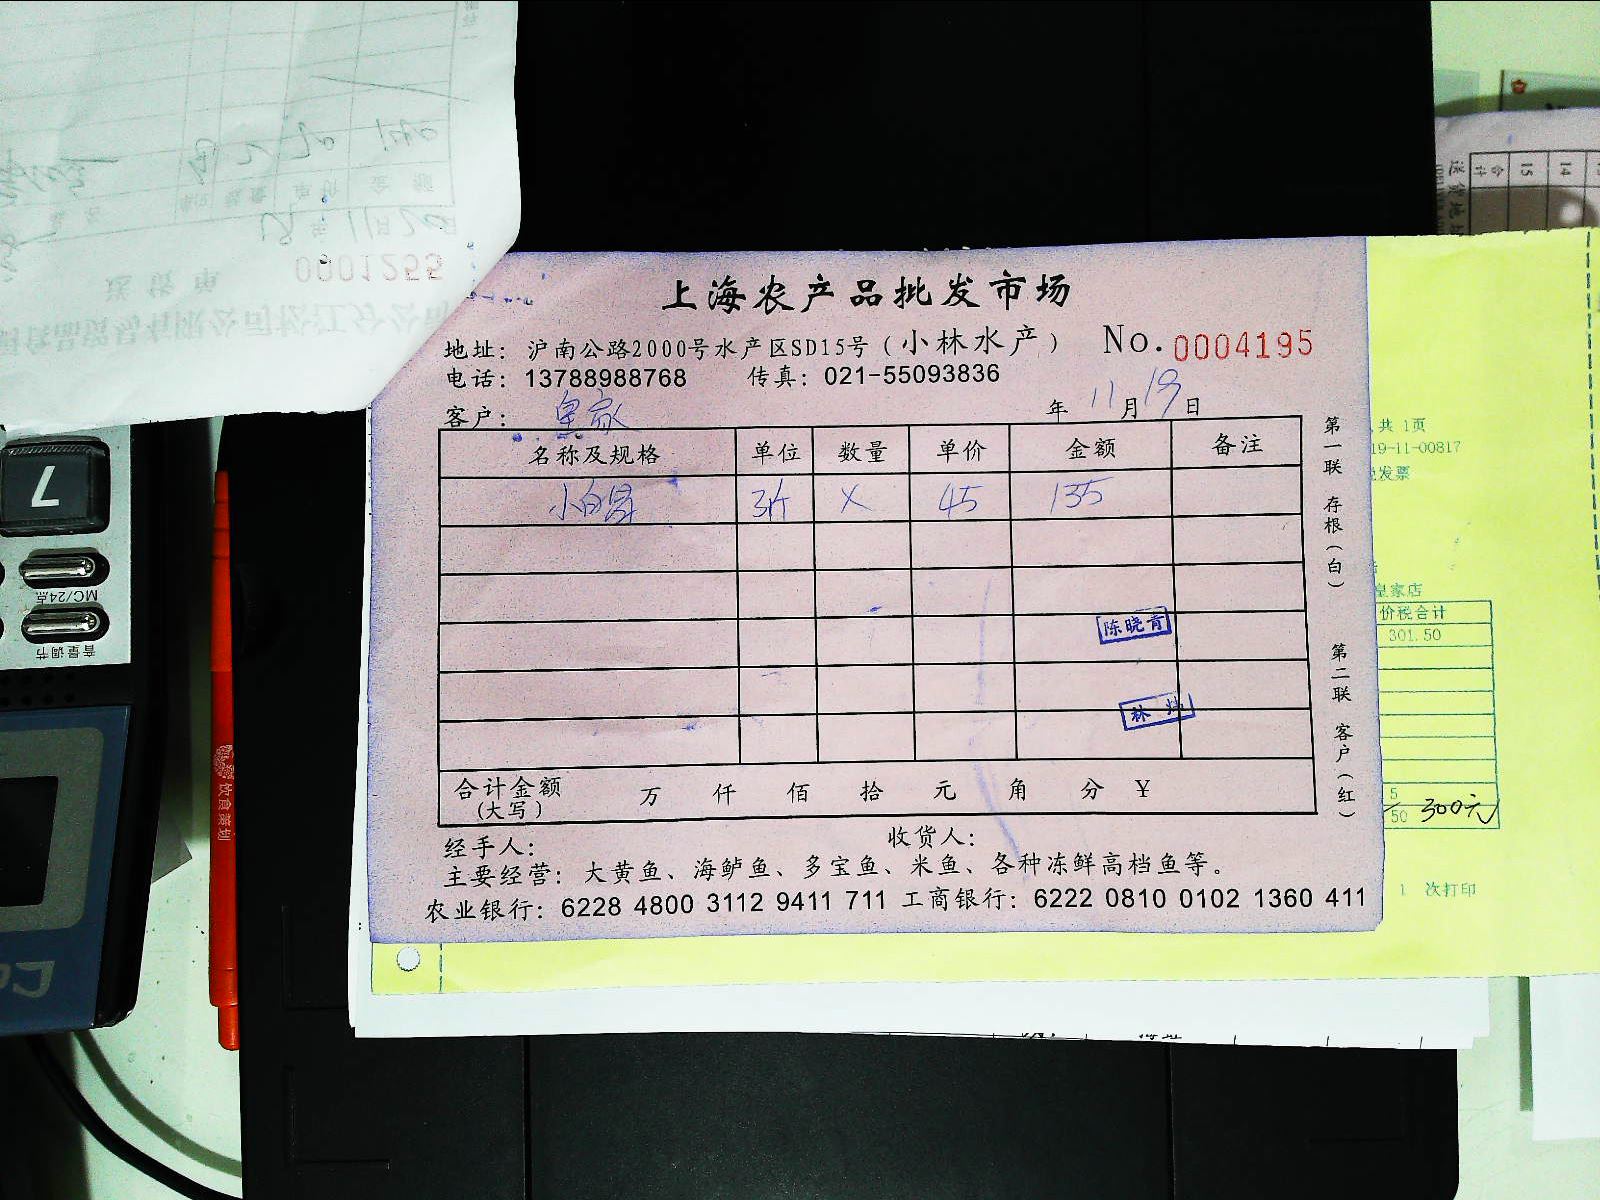 上海农产品批发市场
地址：沪南公路2000号水产区SD15号（小林水产） No.0004195
电话：13788988768 传真：021-55093836
客户： 年 11月19日
名称及规格 单位 数量 单价 金额 备注
3斤 X 45 135
陈晓青
林
合计金额（大写） 万 仟 佰 拾 元 角 分 ￥
经手人： 收货人：
主要经营：大黄鱼、海鲈鱼、多宝鱼、米鱼、各种冻鲜高档鱼等。
农业银行：6228 4800 3112 9411 711 工商银行：6222 0810 0102 1360 411
第一联 存根（白） 第二联 客户（红）
共 1页
19-11-00817
发票
皇家店
价税合计
301.50
5
50 300元
1 次打印
送货单 0001255
7
MC/24点
音量调节
饮食策划
合计 15 14